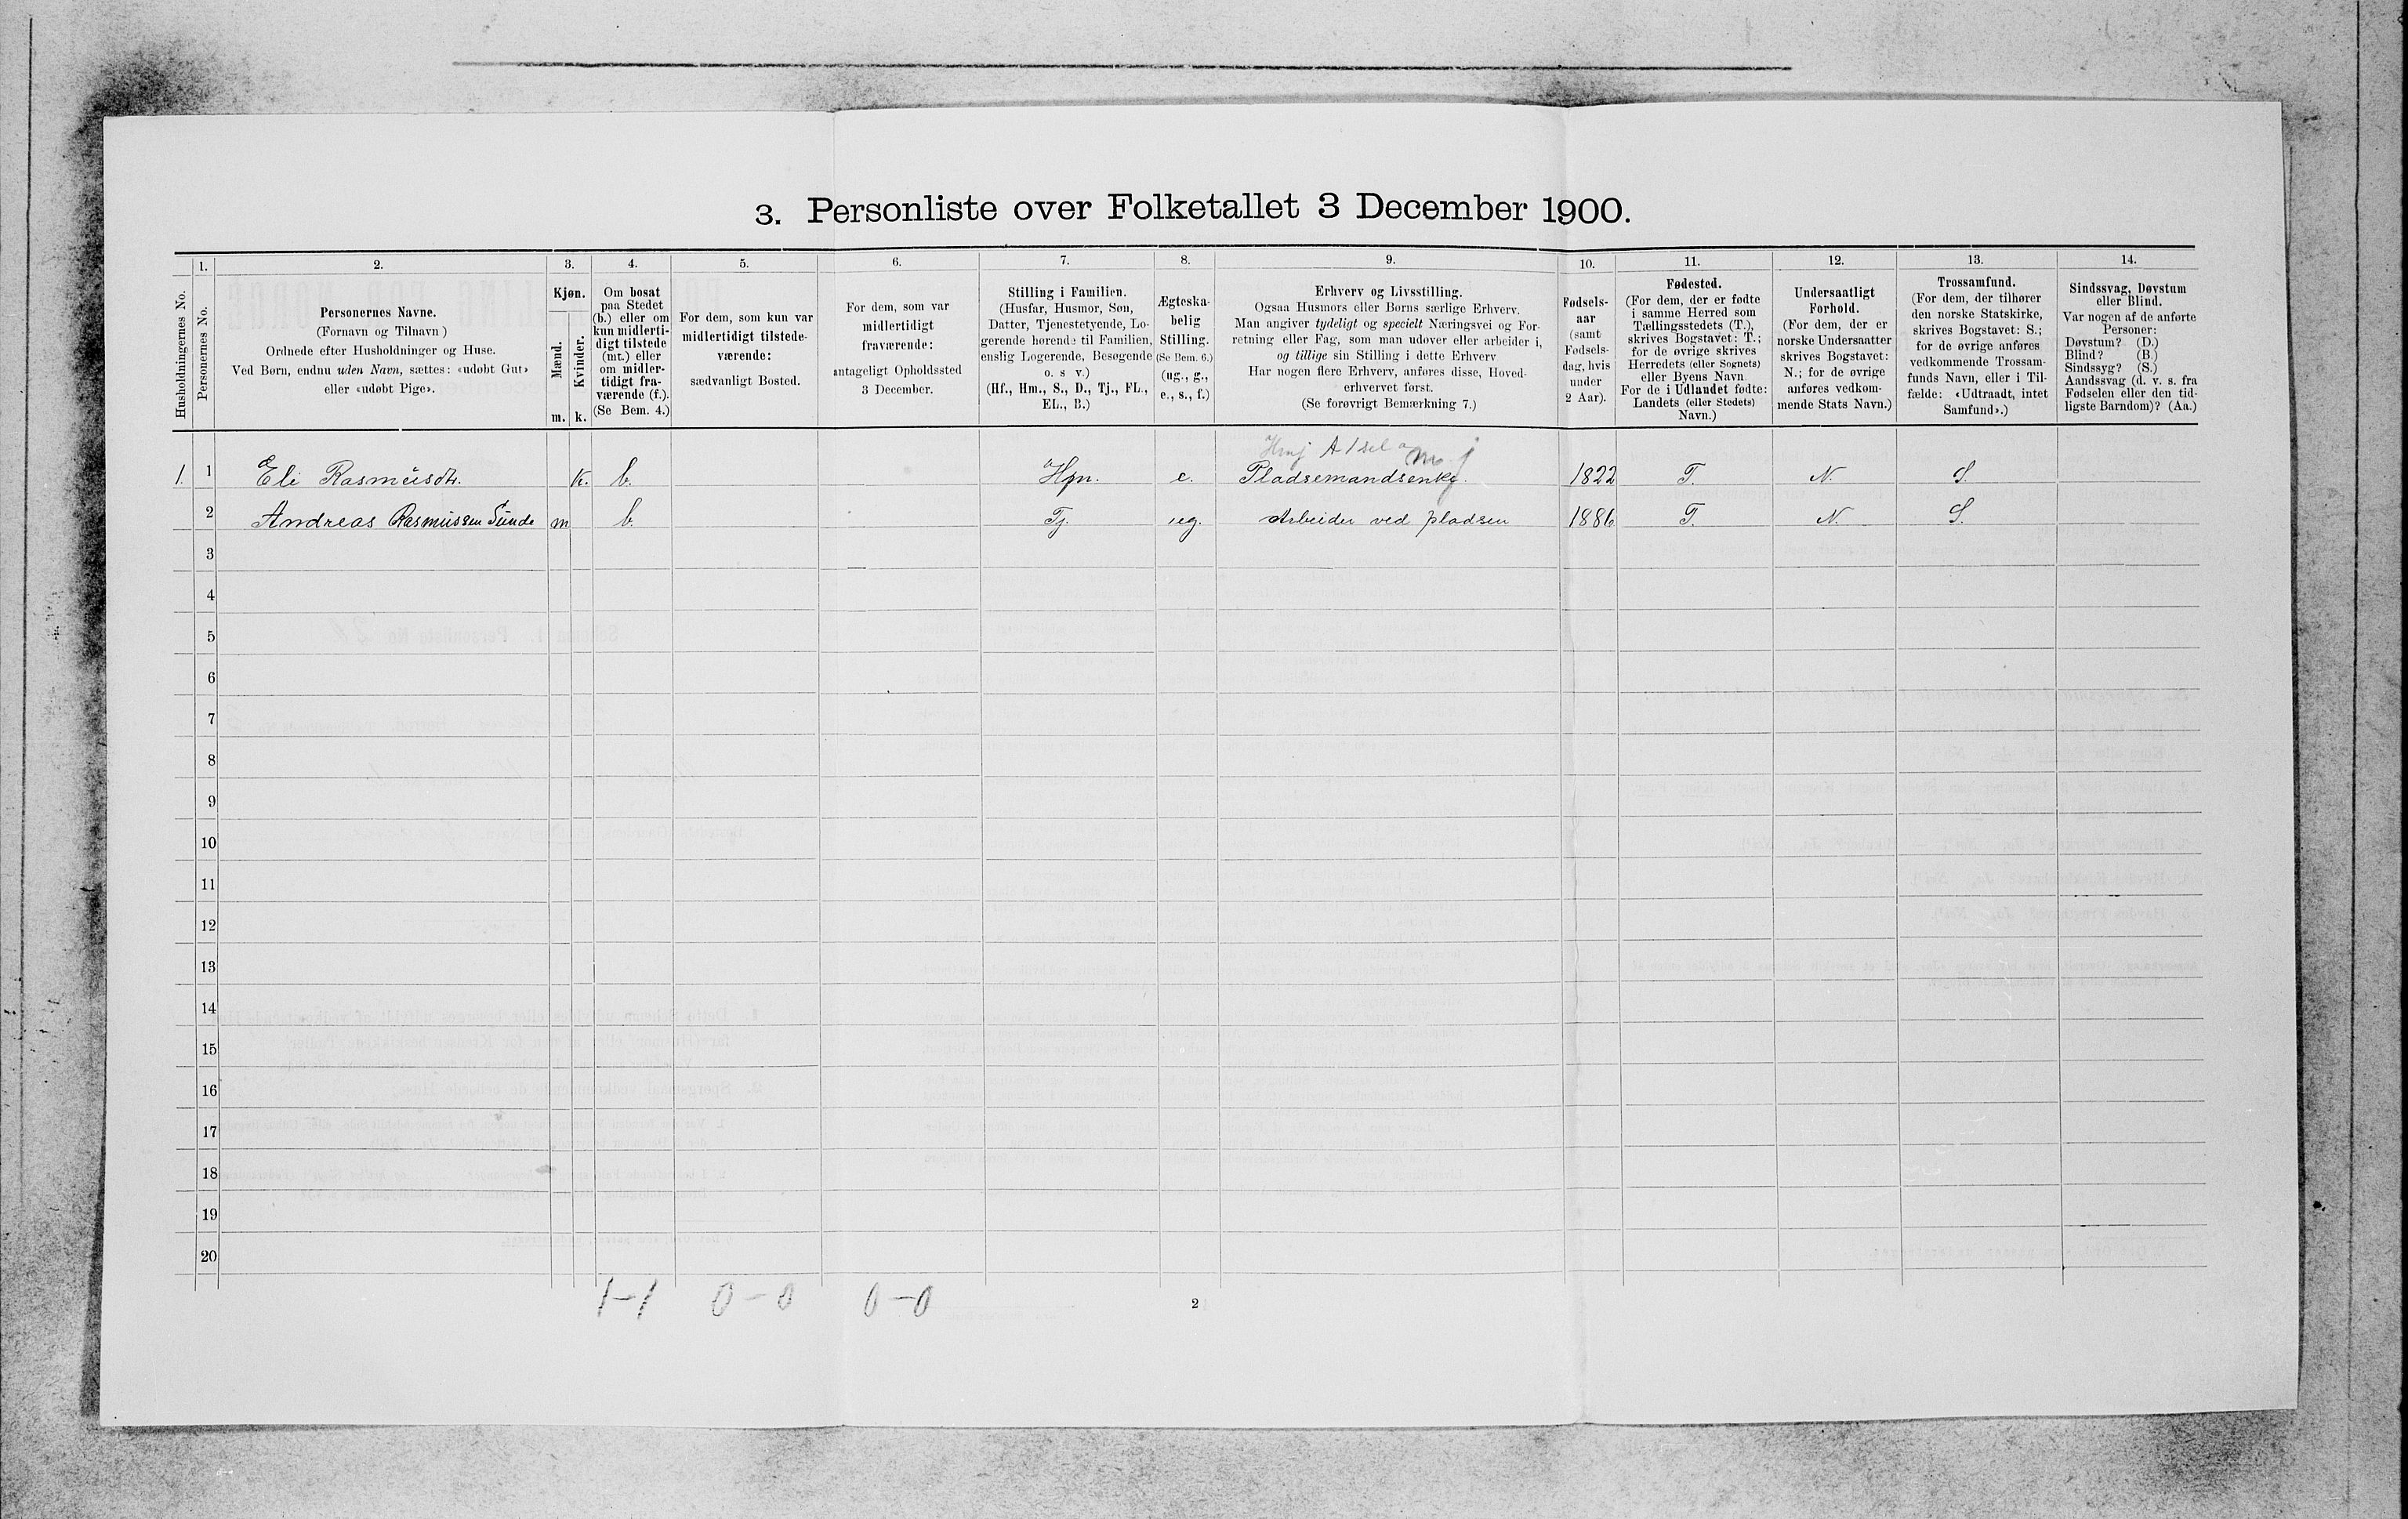 3. Personliste over Folketallet 3 December 1900.
Husholdningernes No.
1.
Personernes No.
2.
Personernes Navne.
(Fornavn og Tilnavn)
Ordnede efter Husholdninger og Huse.
Ved Børn, endnu uden Navn, sættes: «udøbt Gut»
eller «udøbt Pige».
3.
Kjøn.
Mænd.
Kvinder.
m. k.
4.
Om bosat
paa Stedet
(b.) eller om
kun midlerti-
digt tilstede
(mt.) eller
om midler-
tidigt fra-
værende (f.).
(Se Bem. 4.)
5.
For dem, som kun var
midlertidigt tilstede-
værende:
sædvanligt Bosted.
6.
For dem, som var
midlertidigt
fraværende:
antageligt Opholdssted
3 December.
7.
Stilling i Familien.
(Husfar, Husmor, Søn,
Datter, Tjenestetyende, Lo-
gerende hørende til Familien,
enslig Logerende, Besøgende
o. s v.)
(Hf., Hm., S., D., Tj., FL.,
EL., B.)
8.
Ægteska-
belig
Stilling.
(Se Bem. 6.)
(ug., g.,
e., s., f.)
9.
Erhverv og Livsstilling.
Ogsaa Husmors eller Børns særlige Erhverv.
Man angiver tydeligt og specielt Næringsvei og For-
retning eller Fag, som man udøver eller arbeider i,
og tillige sin Stilling i dette Erhverv
Har nogen flere Erhverv, anføres disse, Hoved-
erhvervet først.
(Se forøvrigt Bemærkning 7.)
10.
Fødsels-
aar
(samt
Fødsels-
dag, hvis
under
2 Aar).
11.
Fødested.
(For dem, der er fødte
i samme Herred som
Tællingsstedets (T.),
skrives Bogstavet: T.;
for de øvrige skrives
Herredets (eller Sognets)
eller Byens Navn
For de i Udlandet fødte:
Landets (eller Stedets)
Navn.)
12.
Undersaatligt
Forhold.
(For dem, der er
norske Undersaatter
skrives Bogstavet:
N.; for de øvrige
anføres vedkom-
mende Stats Navn.)
13.
Trossamfund.
(For dem, der tilhører
den norske Statskirke,
skrives Bogstavet: S.;
for de øvrige anføres
vedkommende Trossam-
funds Navn, eller i Til-
fælde: «Udtraadt, intet
Samfund».)
14.
Sindssvag, Døvstum
eller Blind.
Var nogen af de anførte
Personer:
Døvstum? (D.)
Blind? (B.)
Sindssyg? (S.)
Aandssvag (d. v. s. fra
Fødselen eller den tid-
ligste Barndom)? (Aa.)
1. 1 Eli Rasmusdtr. k. b. Hm. e. Pladsemandsenke. 1822 T. N. S.
2 Andreas Rasmussen Sunde m b. Tj. ug. Arbeider ved pladsen 1886 T. N. S.
3
4
5
6
7
8
9
10
11
12
13
14
15
16
17
18
19
20
1-1 0-0 0-0
2